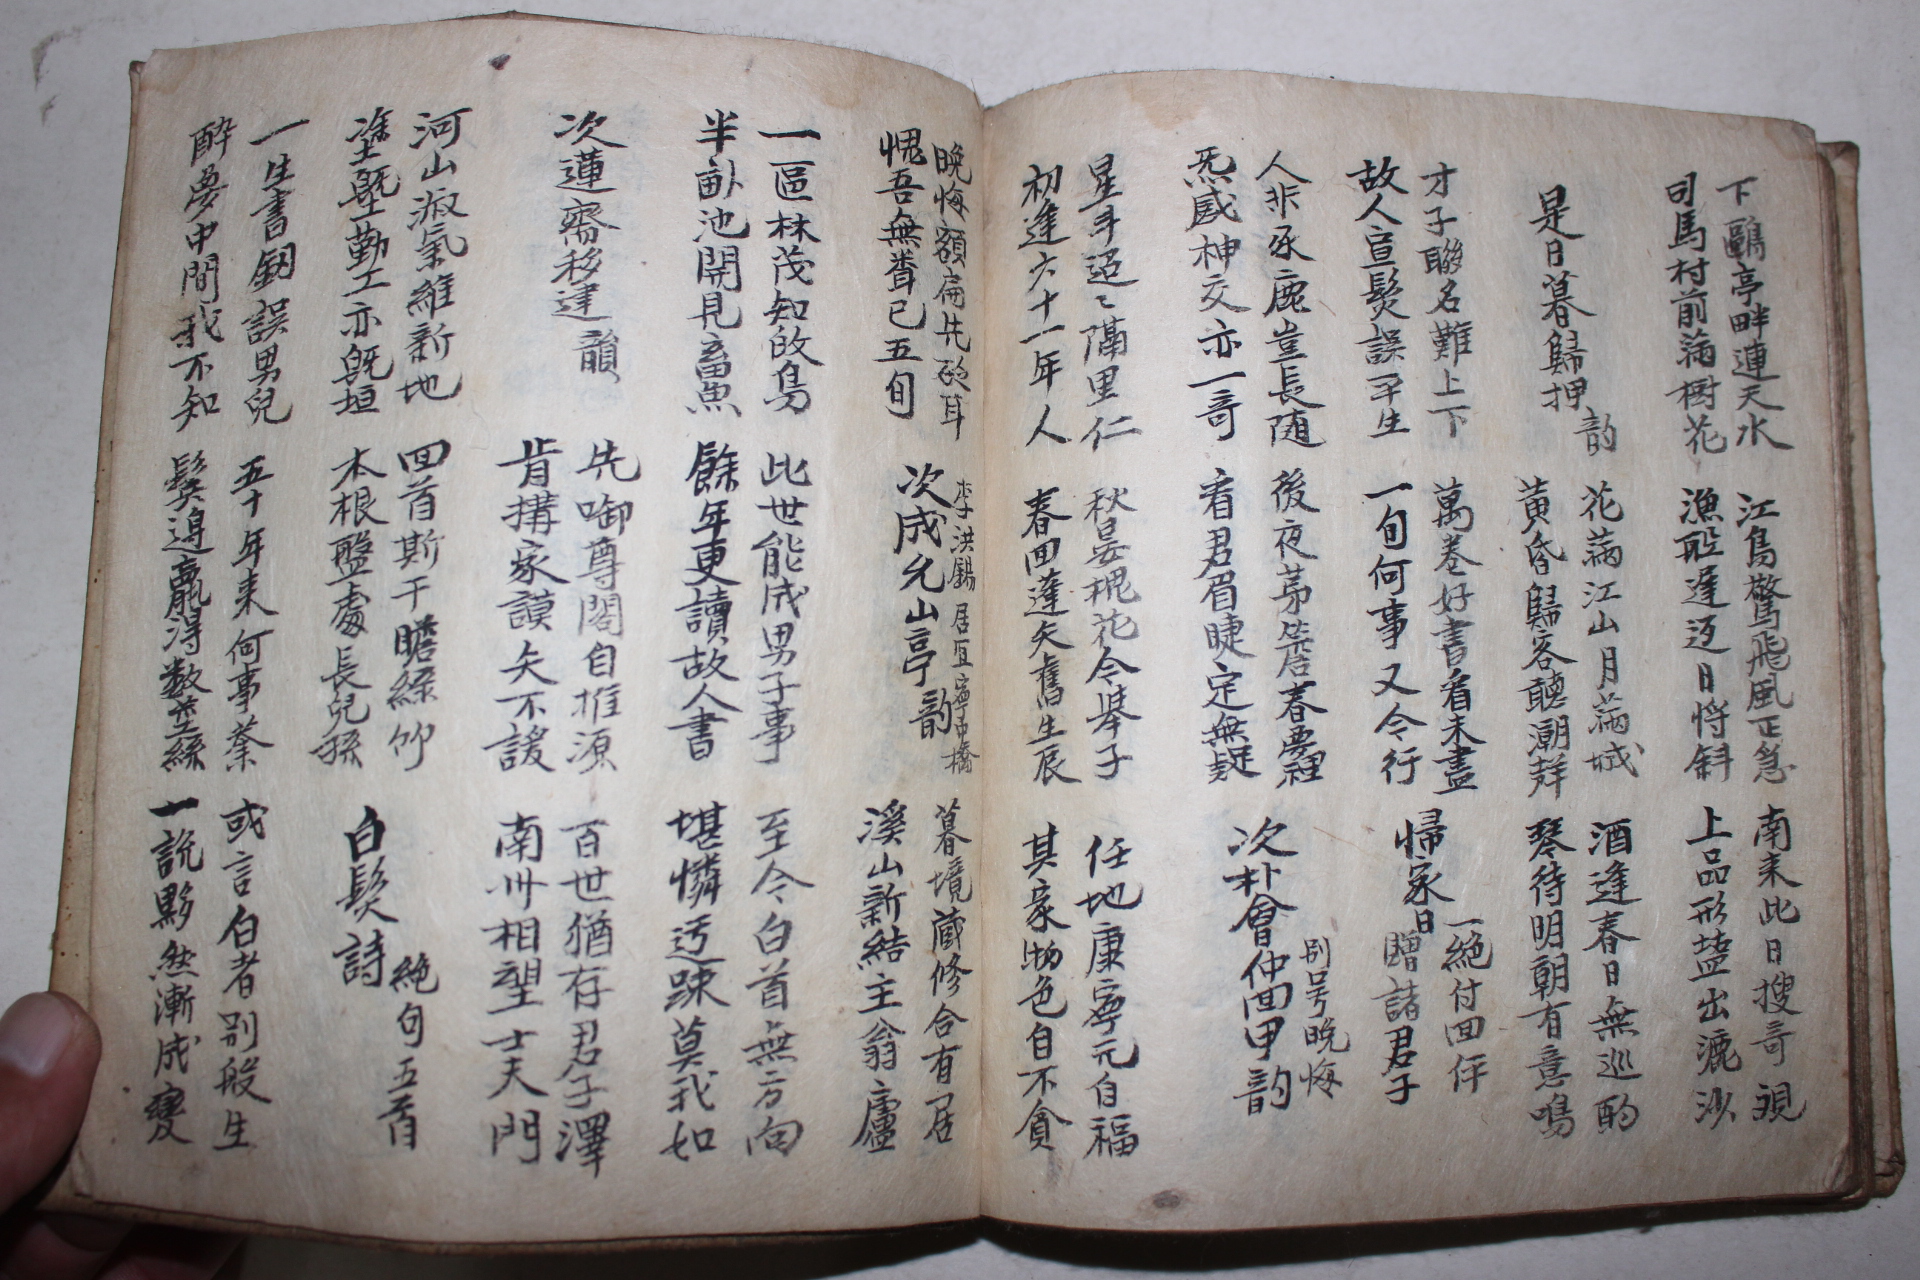 下鷗亭畔連天水 江鳥驚飛風正急 南来此日搜奇視
司馬村前滿樹花 漁歌遲迟日将斜 上品形塩出漉沙
是日暮歸押韵 花滿江山月滿城 酒逢春日無巡酌
黄昏歸客聽潮 琴待明朝有意鳴
才子聯名難上下 萬卷好書看未盡 帰家日一絶付回伻贈諸君子
故人宣髮誤平生 一旬何事又今行
人非豕鹿豈長随 後夜茅簷春夢裡 次朴會仲回甲韵 别号晩悔
炁感神交亦一哥 看君眉睫定無疑
星斗迢〻隔里仁 秋晏槐花今擧子 任地康寧元自福
初逢六十一年人 春回蓬矢舊生辰 其家物色自不貪
晩悔額扁先砭耳 次成允山亭韵 李洪錫居宜寧中橋 暮境蔵修合有居
愧吾無聞已五旬 溪山新結主翁廬
一區林茂知啟鳥 此世能成男子事 至今白首無方向
半畝池開見畜魚 餘年更讀故人書 堪憐迂踈莫我如
次蓮齋移建韻 先啣尊閣自推源 百世猶存君子澤
肯搆家謨矢不諼 南州相望士夫門
河山淑氣維新地 回首斯干瞻綠竹 白髮詩 絶句五首
塗塈勤工亦旣垣 本根盤處長兒孫
一生書釰誤男兒 五十年来何事業 或言白者别般生
酔夢中間我不知 鬂邊贏得数莖絲 一説黟然漸成變